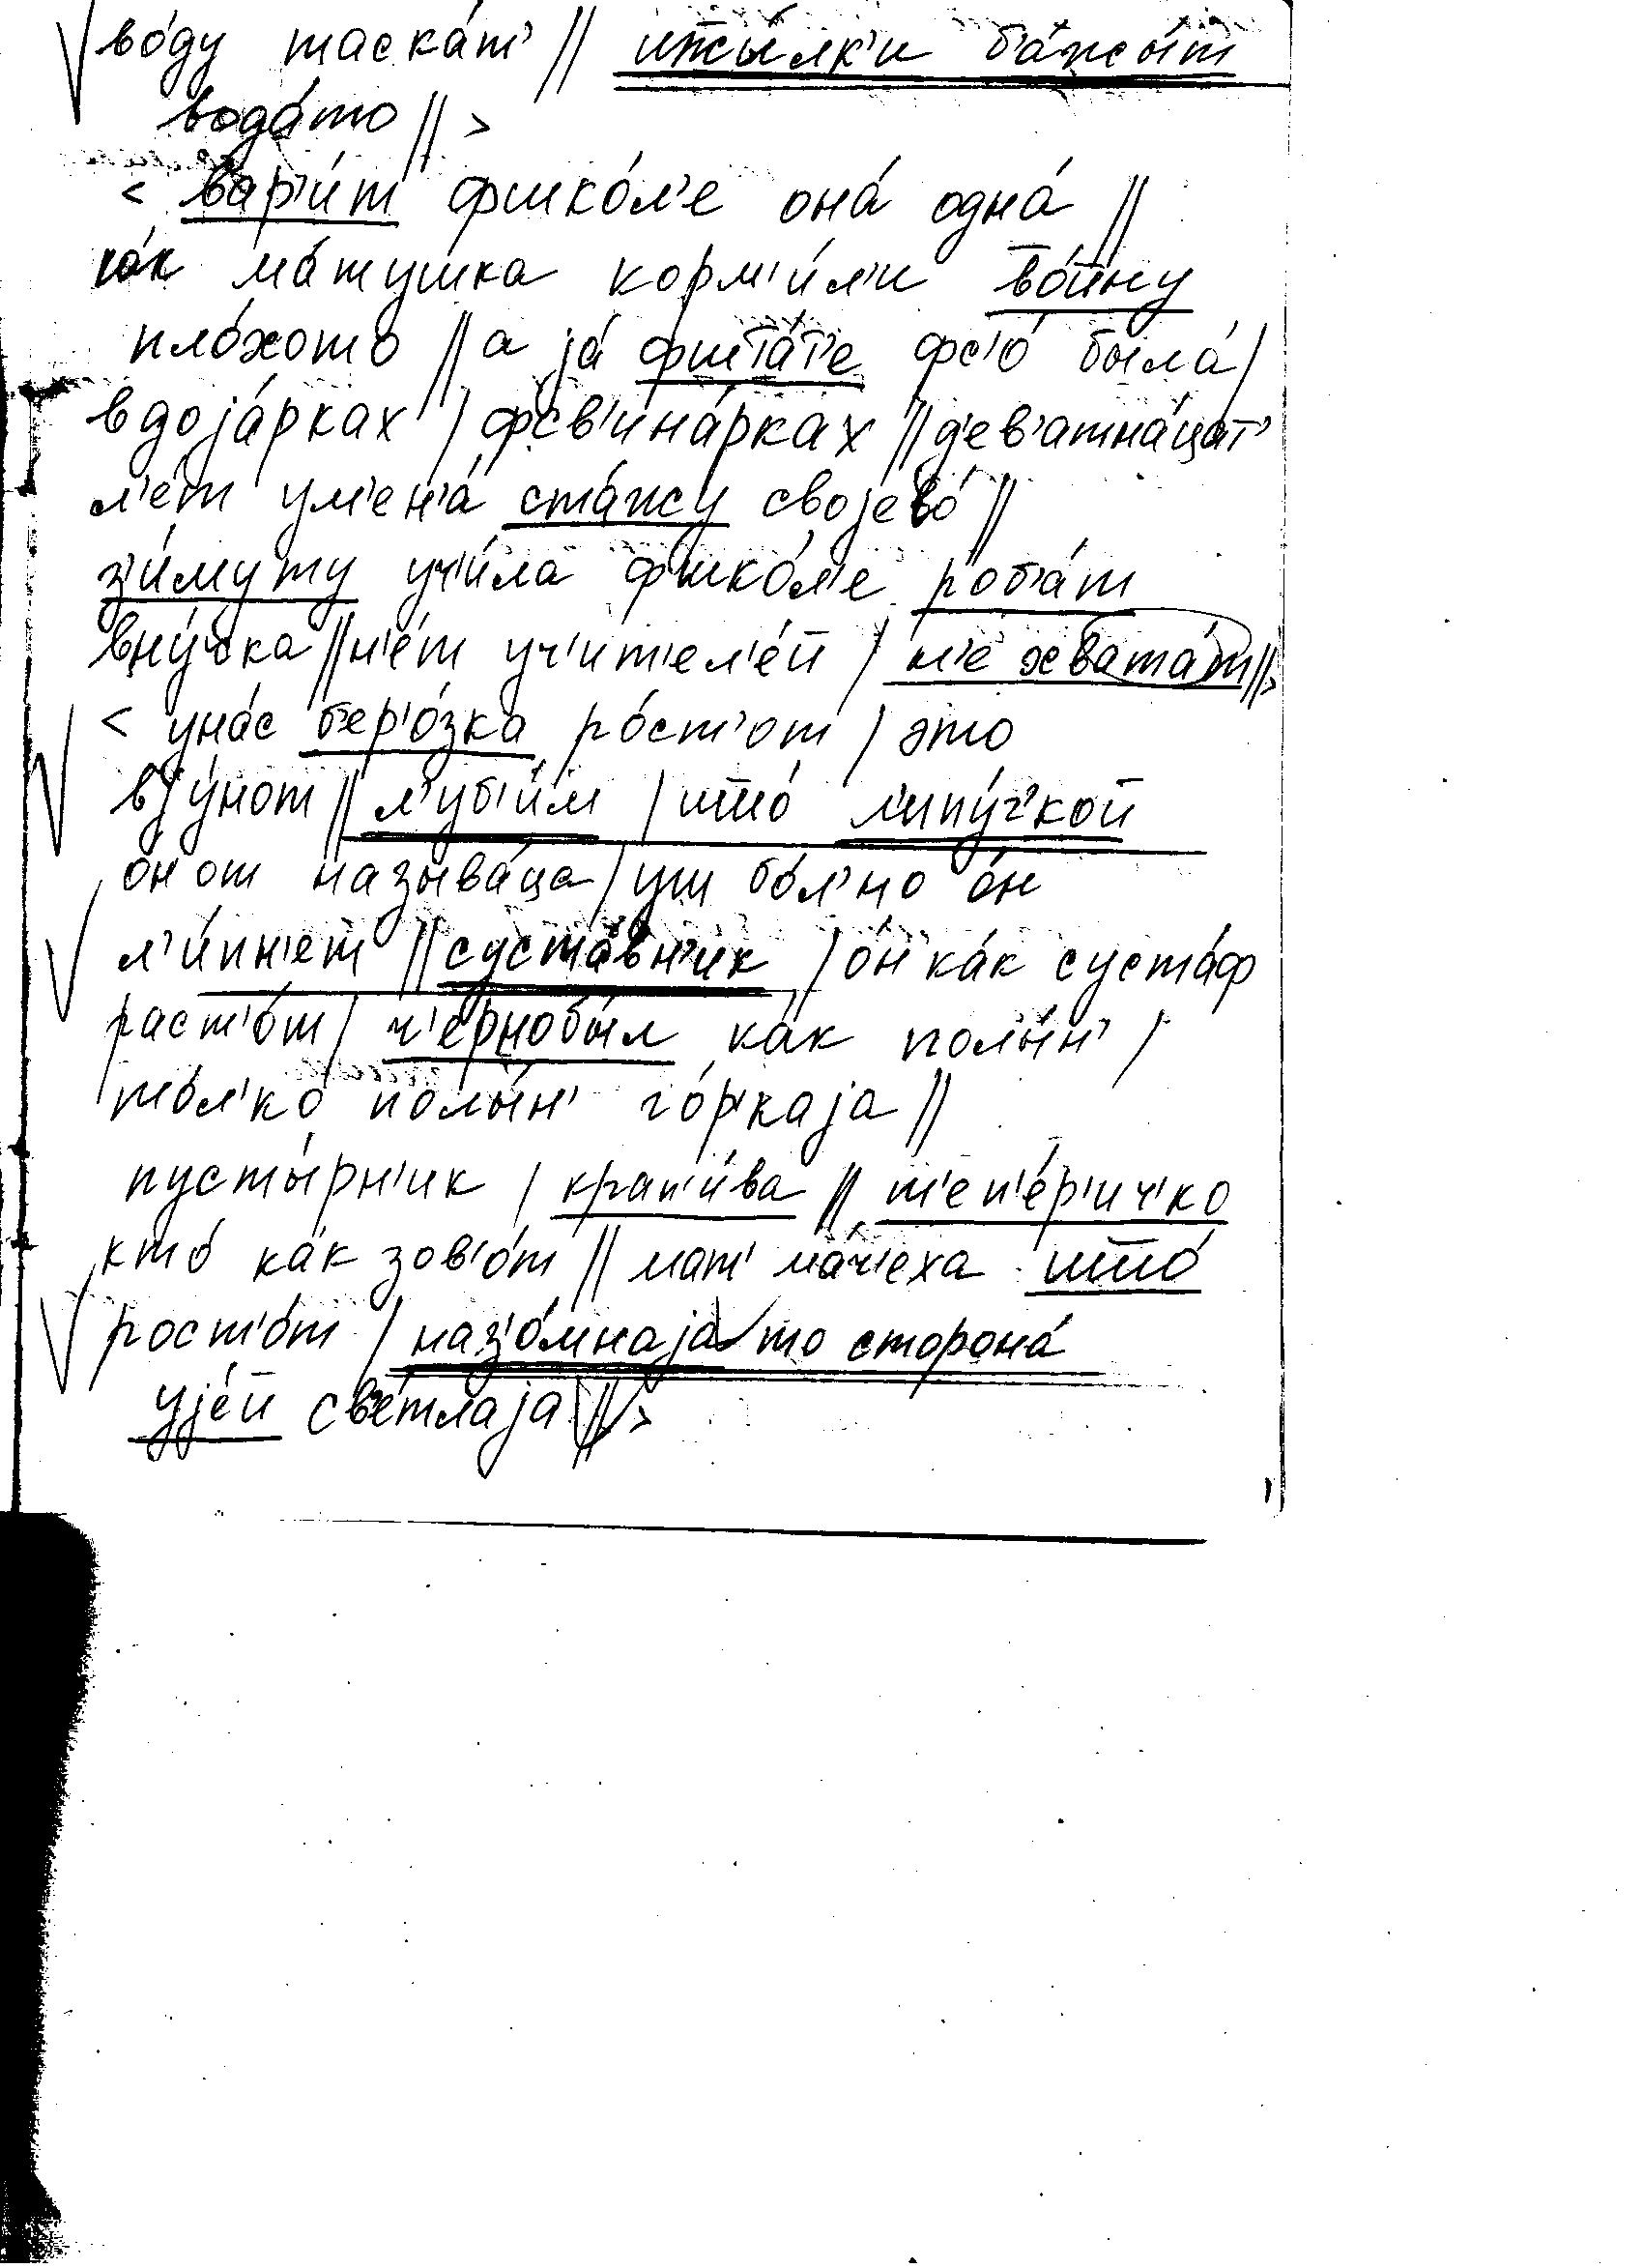 во́ду таска́т' // ижы́лк'и б'а́жы́т
вода́то // >
< вар'и́т фшко́л'е она́ одна́ //
ка́к ма́тушка корм'и́л'и во́йну
пло́хото // а jа́ фшта́т'е фс'о́ была́ /
вдоjа́рках / фсв'ина́рках // д'ев'атна́цат'
л'е́т ум'ен'а́ ста́жу своjево́ //
з'и́муту уч'и́ла фшко́л'е р'об'а́т
вну́чка // н'е́т уч'ит'ел'е́й / н'е хвата́т // >
< уна́с б'ер'о́зка ро́ст'от / это
вjу́нот // л'уб'и́м / што́ л'ипу́ч'кой
о́н от называ́ца / уш бо́л'но о́н
л'и́пн'ет // суста́вн'ик / о́н ка́к суста́ф
раст'о́т / ч'ернобы́л ка́к полы́н' /
то́л'ко полы́н' го́р'каjа //
пусты́рн'ик / крап'и́ва // т'еп'е́р'ич'ко
кто́ ка́к зов'о́т // мат' ма́ч'еха што́
рост'о́т / наз'о́мнаjа то сторона́
уjе́й све́тлаjа // >